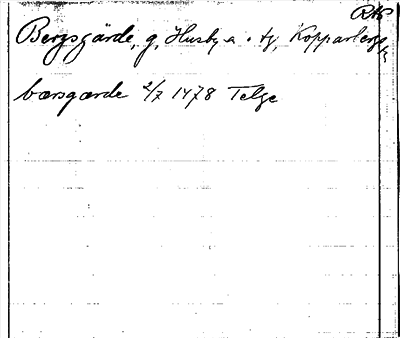 RAP
Bergsgärde, g, Husby s. o tg, Kopparbergs
bærsgærde 2/7 1478 Telge